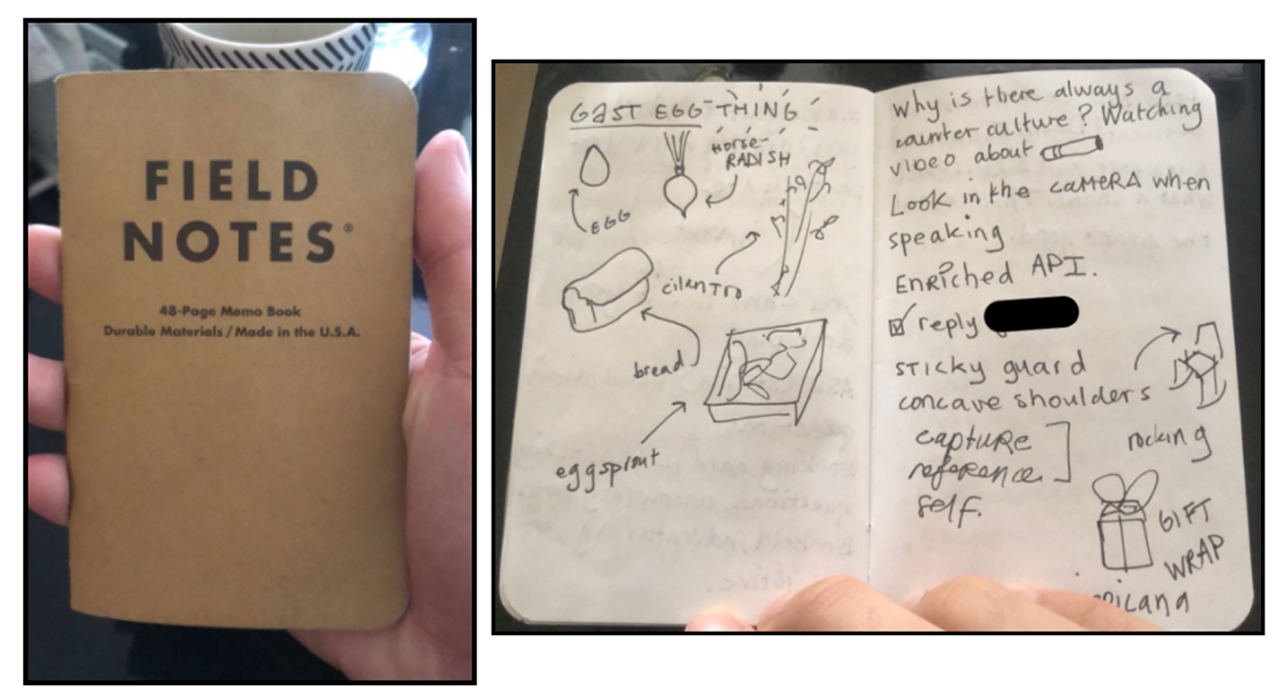 FIELD
NOTES®
48-Page Memo Book
Durable Materials / Made in the U.S.A.
GAST EGG THING
EGG
HORSE-
RADISH
cilantro
bread
eggsprout
Why is there always a
counter culture? Watching
video about
Look in the CAMERA when
speaking
Enriched API.
reply
sticky guard
concave shoulders
capture
reference
self.
rocking
GIFT
WRAP